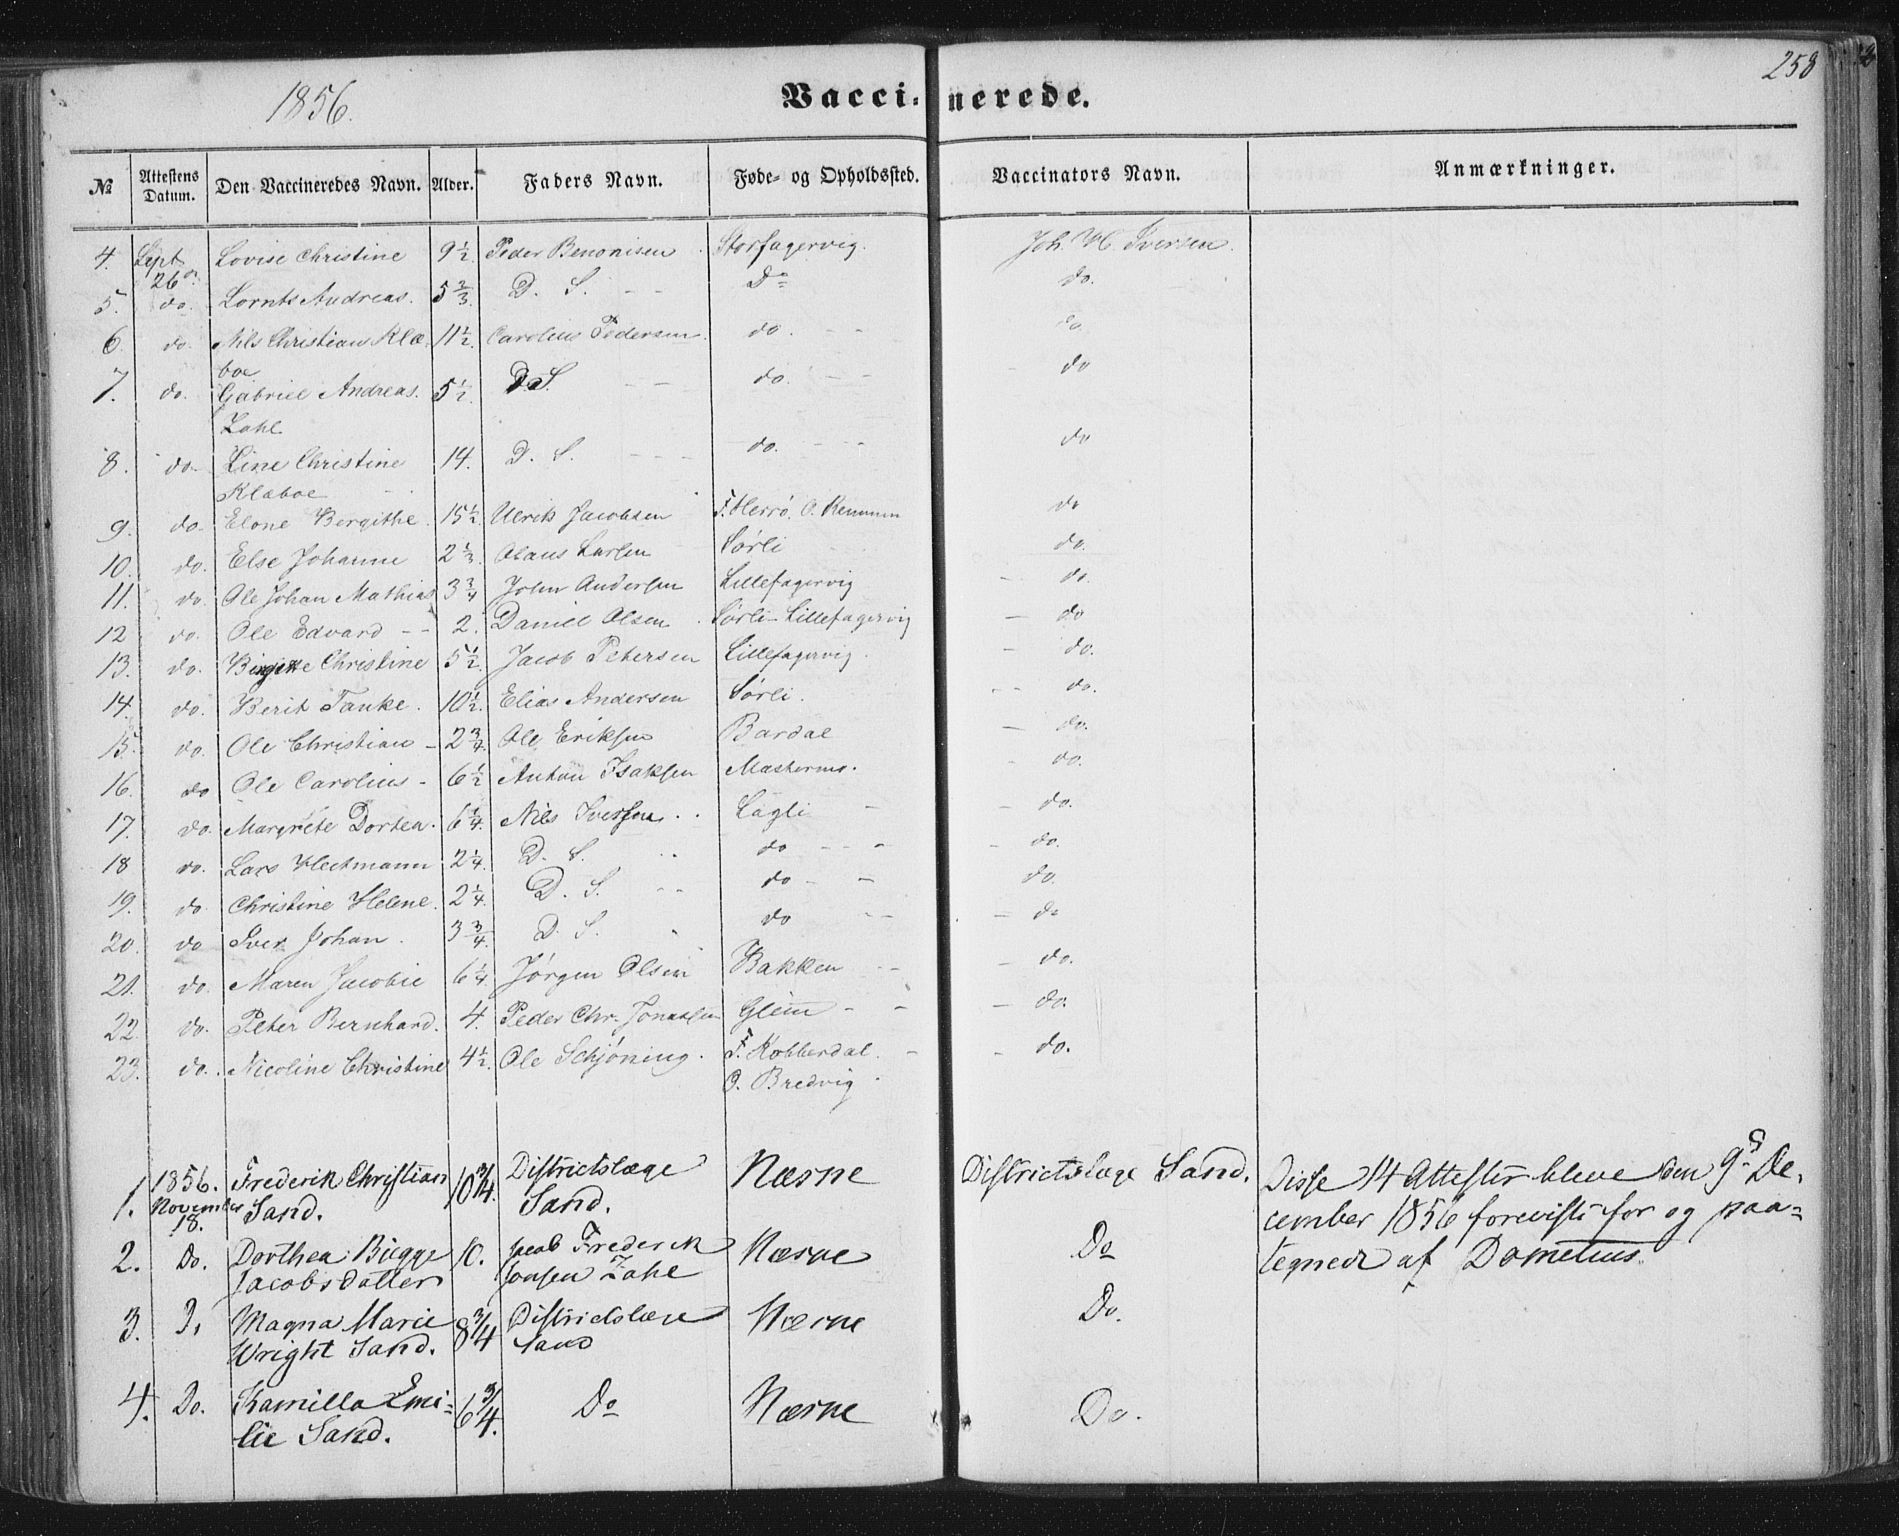 1856.
Vaccinerede.
258
№ Attestens Datum. Den Vaccineredes Navn. Alder. Faders Navn. Føde- og Opholdssted. Vaccinators Navn. Anmærkninger.
4. Sept 26de Lovise Christine 9½ Peder Benonisen Storfagervig. Joh. H. Iversen.
5. do. Lornts Andreas. 5⅔ D. S. Do do.
6. do. Nils Christian Klæ- 11½ Carolius Pedersen do. do.
boe
7. do. Gabriel Andreas. 5½ D. S. do. do
Zahl
8. do. Line Christine 14. D. S. do. do
Klæboe
9. do. Elone Bergithe 15½ Ulrik Jacobsen F. Herrø. O. do
10. do. Else Johanne 2⅓ Olaus Larsen Sørli do.
11. do. Ole Johan Mathias 3¾ John Andersen Lillefagervig do.
12 do. Ole Edvard 2. Daniel Olsen Sørli - Lillefagervig do
13. do. Birgitte Christine 5½ Jacob Petersen Lillefagervig. do.
14. do. Berit Tanke. 10½ Elias Andersen Sørli. do.
15. do. Ole Christian 2¾ Ole Eriksen Bardal do.
16. do Ole Carolius 6½ Anton Isaksen Mastermo. do.
17. do. Margrete Dortea. 6¼ Nils Iversen Lagli do.
18 do. Lars Hectmann 2¼ D. S. do do.
19. do Christine Helene. 2¼ D. S. do do.
20. do Iver Johan. 3¾ D. S. do do
21. do. Maren Jacobie 6¼ Jørgen Olsen Bakken do.
22. do. Peter Bernhard. 4. Peder Chr. Jonassen Glein do.
23. do. Nicoline Christine 4½ Ole Schjøning. F. Kobberdal. do.
O. Bredvig.
1. 1856. November 18. Frederik Christian 10¾ Districtslæge Næsne Districtslæge Sand. Disse 14 Attester bleve den 9de De-
Sand. Sand. cember 1856 foreviste for og paa-
2. Do. Dorthea Bugge 10. Jacob Frederik Næsne Do tegnede af Dometius.
Jacobsdatter Jonsen Zahl
3. D. Magna Marie 8¾ Districtslæge Næsne Do.
Wright Sand. Sand
4. Do. Kamilla Emi- 6¾ Do Næsne Do.
lie Sand.